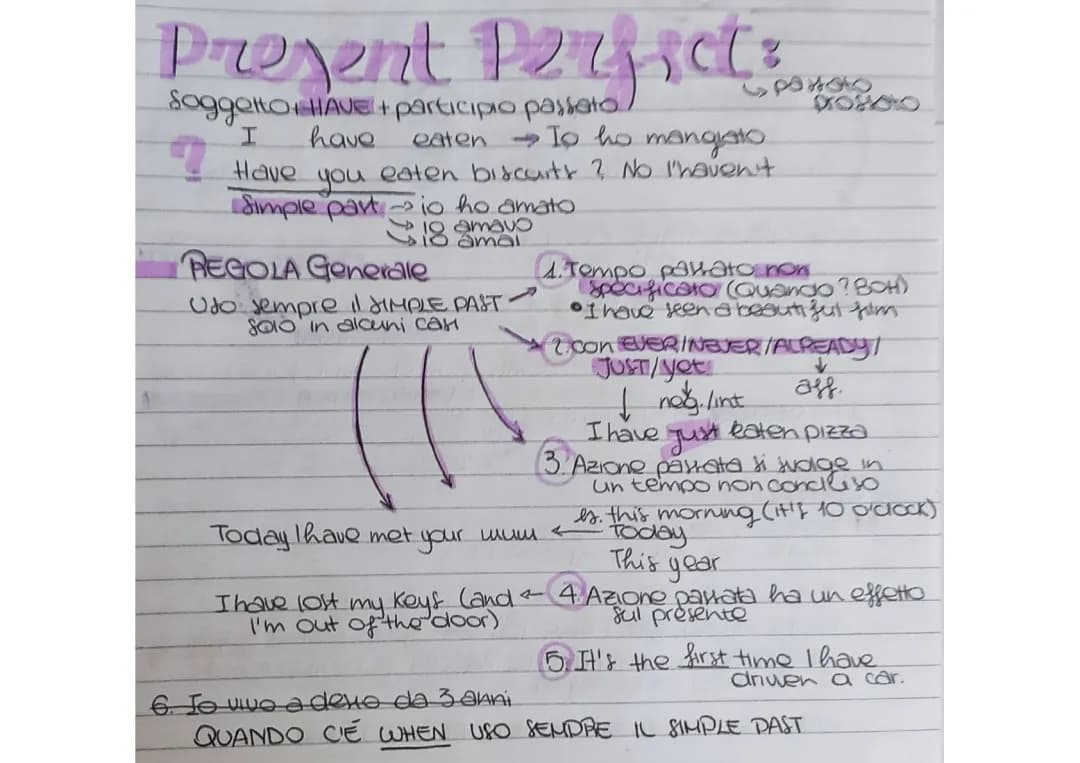 Present Perfect:
↳ passato
prossimo
Soggetto + HAVE + participio passato
I have eaten → Io ho mangiato
?
Have you eaten biscuits? No I haven't
Simple past → io ho amato
↳ io amavo
↳ io amai
REGOLA Generale
Uso sempre il SIMPLE PAST
solo in alcuni casi
1. Tempo passato non
specificato (Quando? BOH)
• I have seen a beautiful film
2. con EVER/NEVER/ALREADY/
JUST/yet
↓ aff.
↓ neg./int
I have just eaten pizza
3. Azione passata si svolge in
un tempo non concluso
es. this morning (it's 10 o'clock)
Today I have met your mum ← Today
This year
I have lost my keys (and ← 4. Azione passata ha un effetto
I'm out of the door) sul presente
5. It's the first time I have
driven a car.
6. Io vivo adesso da 3 anni
QUANDO C'É WHEN USO SEMPRE IL SIMPLE PAST